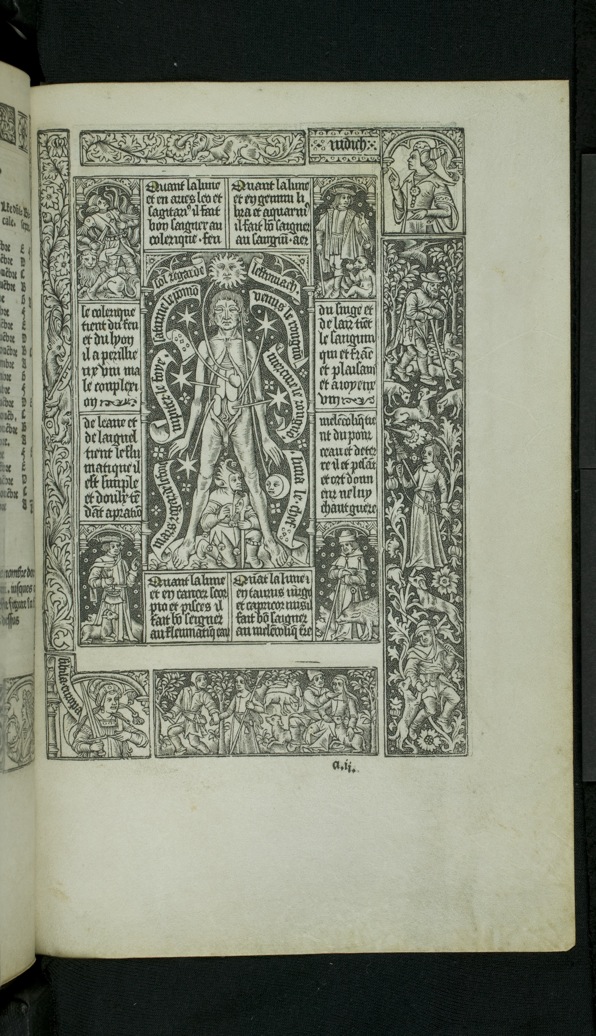 iudich
Quant la lune
et en aries leo et
sagitari⁹ il fait
bon saigner au
colerique. feu
Quant la lune
et en gemini li
bra et aquarius
il fait bõ saigner
au sanguĩ. aer
sol regarde
lestomach
saturne le pomõ
venus le rougnõ
Jupiter le foye
mercure le rougnõ
mars
luna le chef
le colerique
tient du feu
et du lyon
il a perilhe
ux vin ma
le complexi
on
du singe et
de lair tiẽt
le sanguin
qui et frãc
et plaisant
et a ioyeux
vin
de leaue et
de laignel
tient le flu
matique il
est simple
et doulx tẽ
dãt a pratiq̃
melẽcolique
nt du pour
ceau et de ter
re il et pesãt
et ort donn
eur ne luy
chaut guere
Quant la lune
et en cancer scor
pio et pisces il
fait bõ seigner
au fleumatiq̃ eau
Quãt la lune i
en taurus uirgo
et capricornus il
fait bõ saigner
au melẽcoliq̃ t̃re
a.ij.